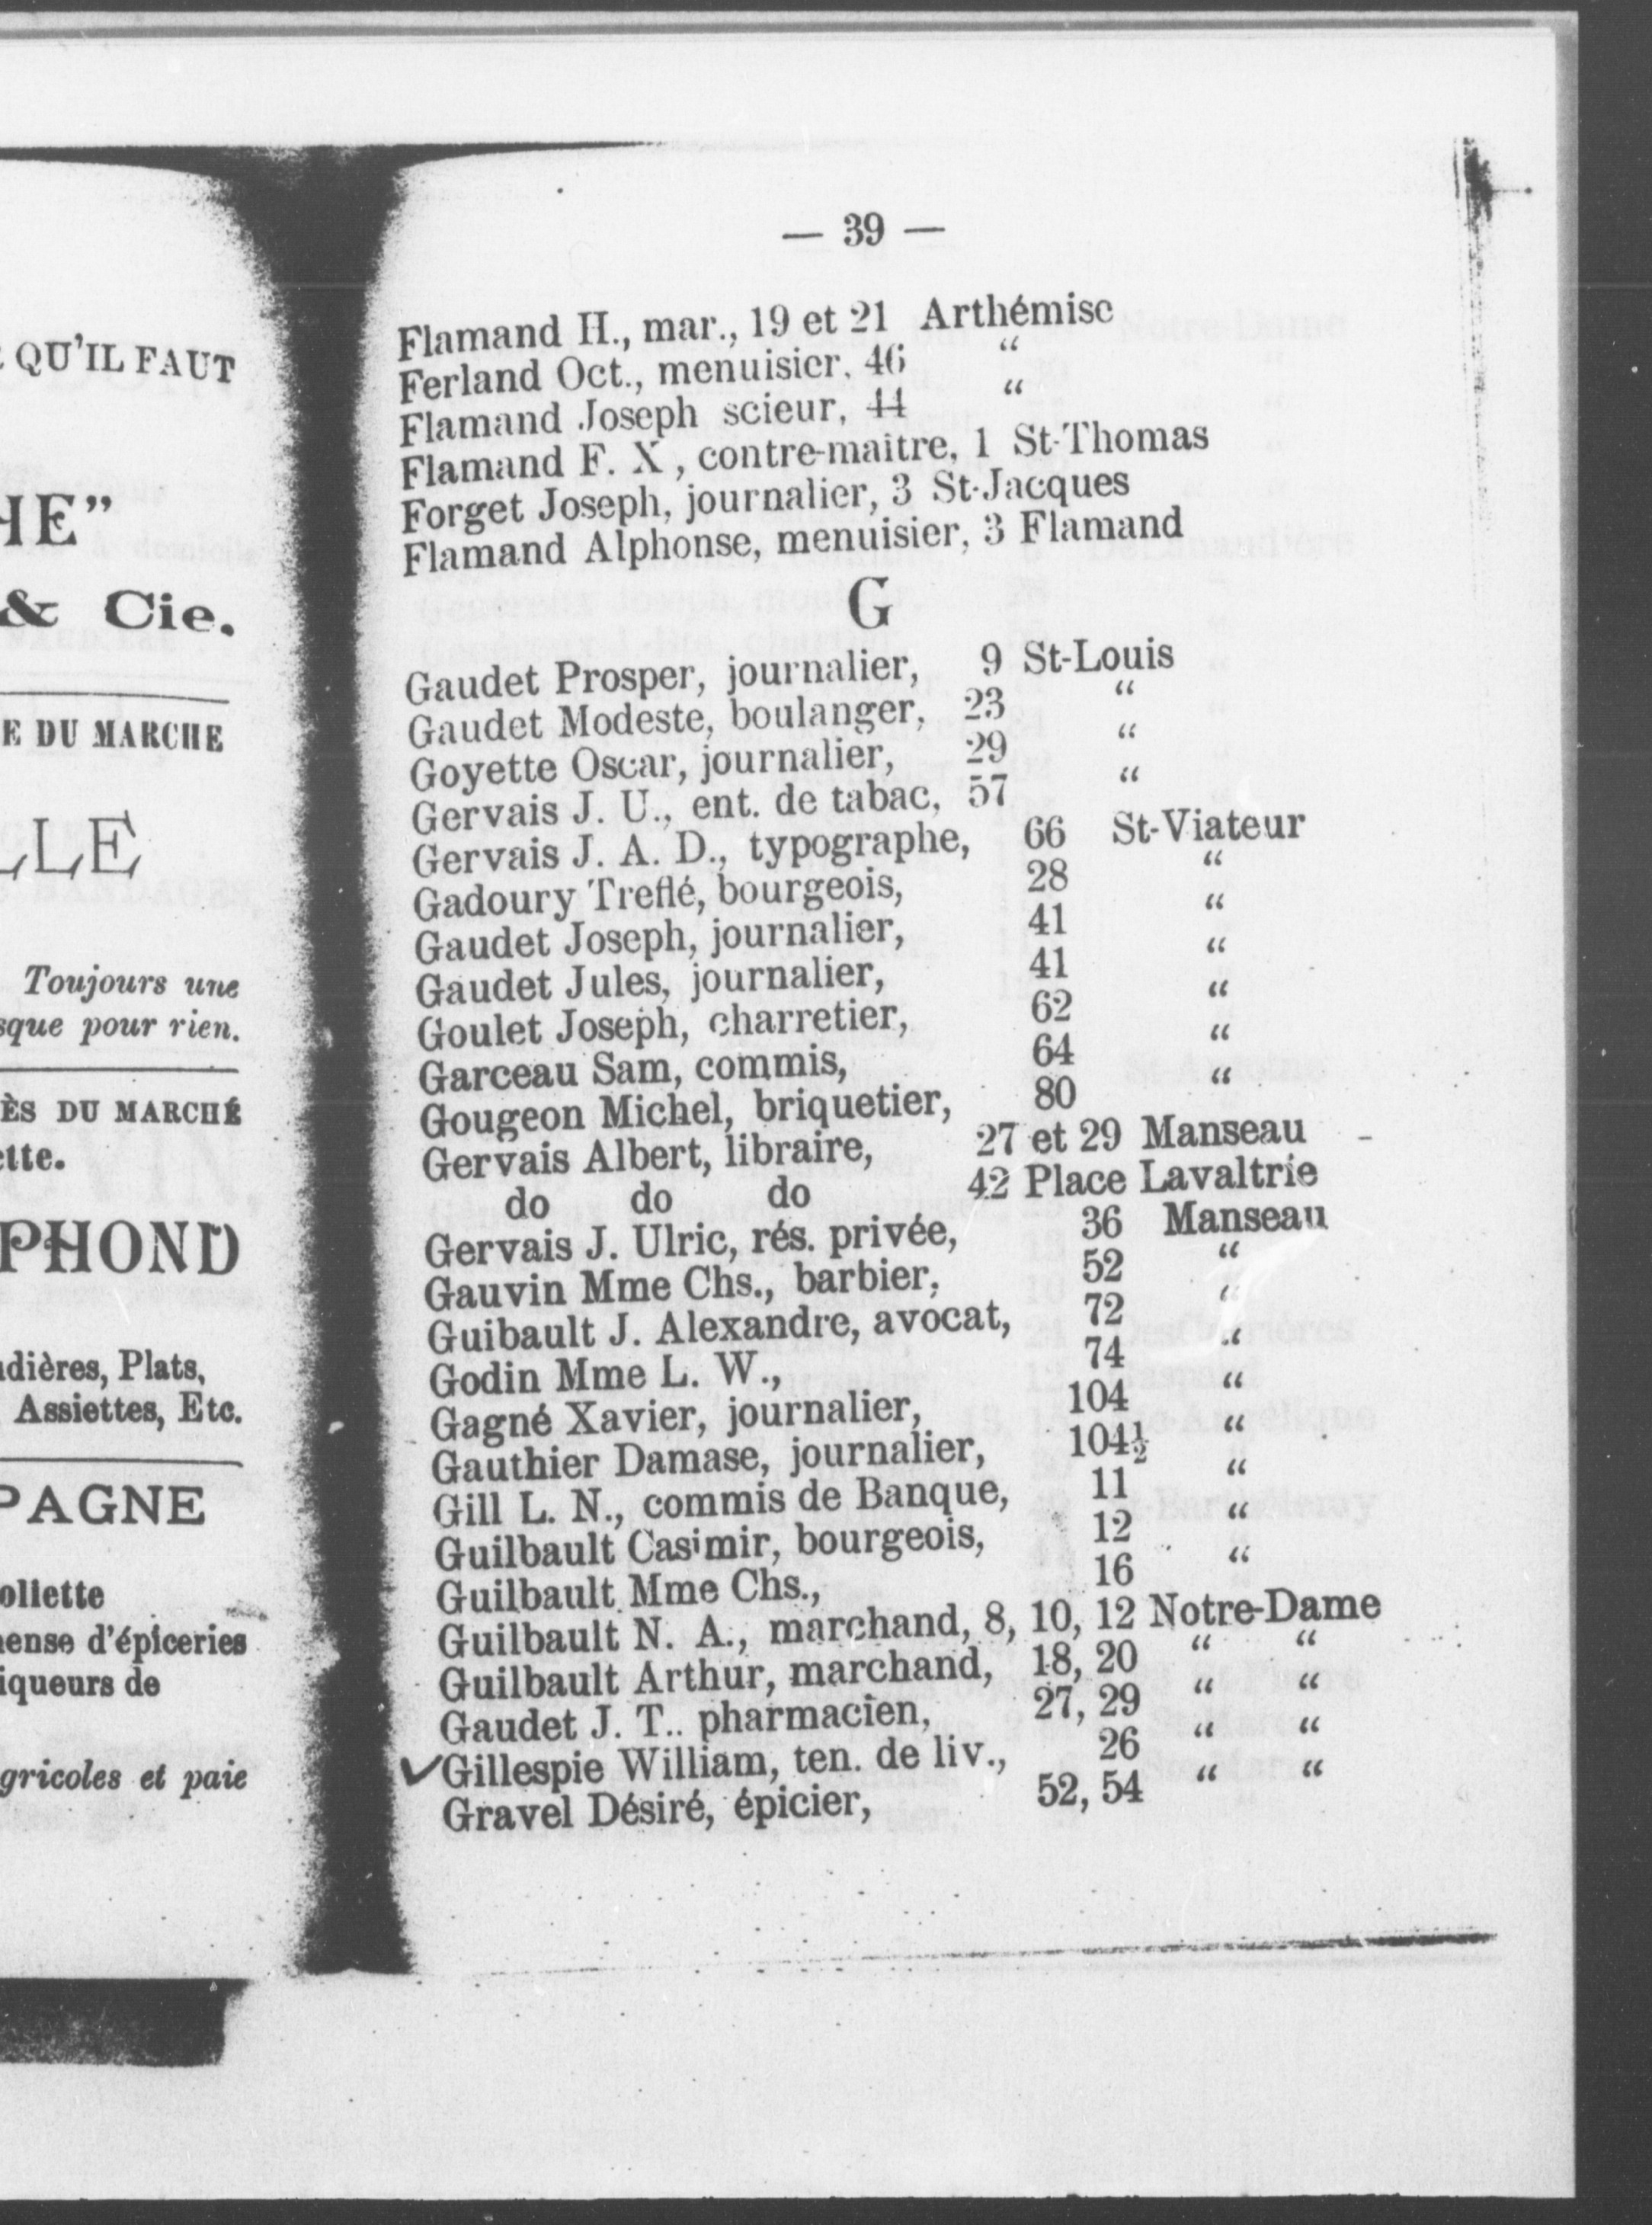 QU'IL FAUT
HE"
& Cie.
E DU MARCHE
LLE
Toujours une
sque pour rien.
ÈS DU MARCHÉ
ette.
PHOND
dières, Plats,
Assiettes, Etc.
PAGNE
oliette
ense d'épiceries
iqueurs de
gricoles et paie
— 39 —
Flamand H., mar., 19 et 21 Arthémise
Ferland Oct., menuisier, 46 "
Flamand Joseph scieur, 44 "
Flamand F. X , contre-maitre, 1 St-Thomas
Forget Joseph, journalier, 3 St-Jacques
Flamand Alphonse, menuisier, 3 Flamand
G
Gaudet Prosper, journalier, 9 St-Louis
Gaudet Modeste, boulanger, 23 "
Goyette Oscar, journalier, 29 "
Gervais J. U., ent. de tabac, 57 "
Gervais J. A. D., typographe, 66 St-Viateur
Gadoury Treflé, bourgeois, 28 "
Gaudet Joseph, journalier, 41 "
Gaudet Jules, journalier, 41 "
Goulet Joseph, charretier, 62 "
Garceau Sam, commis, 64 "
Gougeon Michel, briquetier, 80 "
Gervais Albert, libraire, 27 et 29 Manseau
do do do 42 Place Lavaltrie
Gervais J. Ulric, rés. privée, 36 Manseau
Gauvin Mme Chs., barbier, 52 "
Guibault J. Alexandre, avocat, 72 "
Godin Mme L. W., 74 "
Gagné Xavier, journalier, 104 "
Gauthier Damase, journalier, 104½ "
Gill L. N., commis de Banque, 11 "
Guilbault Casimir, bourgeois, 12 "
Guilbault Mme Chs., 16 "
Guilbault N. A., marchand, 8, 10, 12 Notre-Dame
Guilbault Arthur, marchand, 18, 20 " "
Gaudet J. T.. pharmacien, 27, 29 " "
✓Gillespie William, ten. de liv., 26 " "
Gravel Désiré, épicier, 52, 54 " "